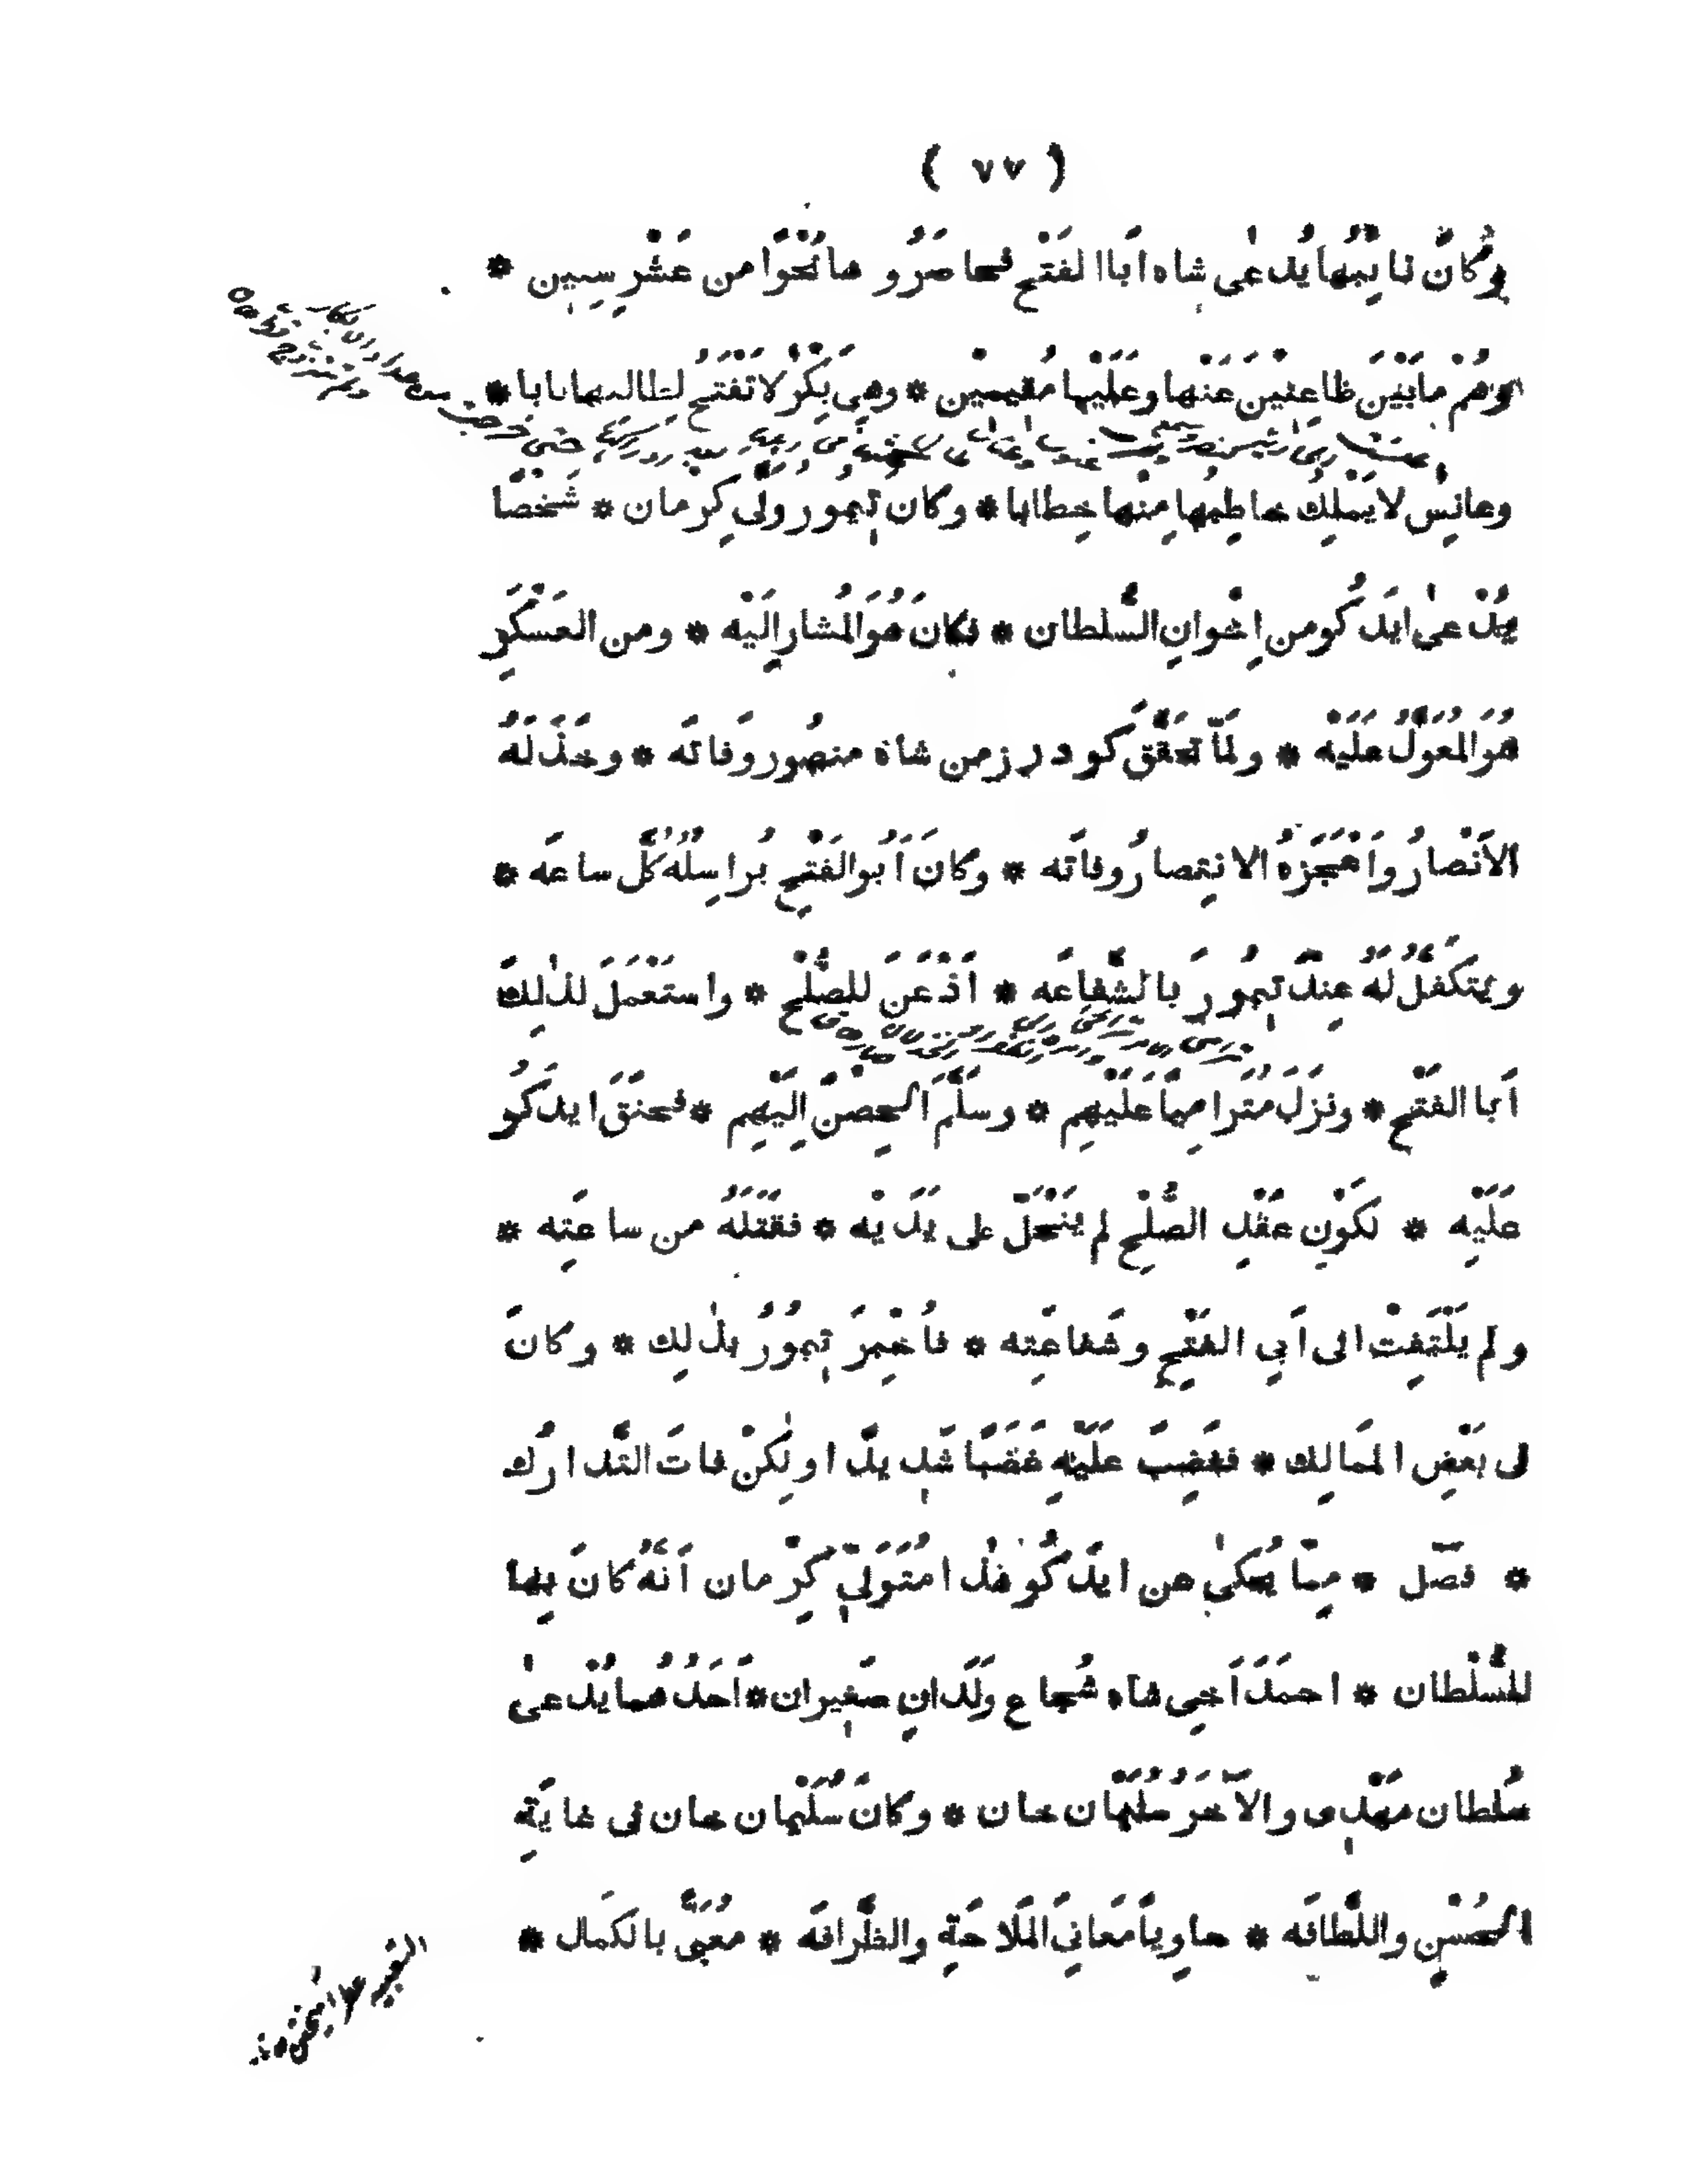 ( ٧٧ )
وكان نائِبُها يُدْعىٰ شاه اَبا الفَتْحِ فحاصَرُوها نَحْوًا من عَشْرِ سِنِين *
وهُمْ ما بَيْنَ ظاعِنْينَ عَنْها وعَلَيْها مُقيمين * وهِى بِكْرٌ لا تَفْتَحُ لطالبها بابا *
وعانِسٌ لا يَمْلِكُ خاطِبُها مِنْها خِطابا * وكان تِيمور ولّى كِرْمان * شَخْصًا
يُدْعىٰ ايدَ كُو من اِخْوانِ السُّلطان * فكانَ هُوَ المُشار اِلَيْه * ومن العَسْكَرِ
هُوَ المُعَوَّلُ عَلَيْه * ولمّا تحَقَّقَ كودرز من شاه منصُور وَفاتَه * وخَذَ لَهُ
الاَنْصارُ واَعْجَزَهُ الانتِصارُ وفاتَه * وكانَ اَبُو الفَتْحِ يُراسِلُهُ كُلَّ ساعَه *
ويتَكَفَّلُ لَهُ عِنْدَ تِيمُورَ بالشَّفاعَه * اَذْعَنَ للصُّلْحِ * واسْتَعْمَلَ لذٰلِكَ
اَبا الفَتْحِ * ونَزَلَ مُتَرامِياً عَلَيْهِم * وسلَّمَ الحِصْنَ اِلَيْهِم * فحنقَ ايدَكُو
عَلَيْه * لكَوْنِ عَقْدِ الصُّلْحِ لم يَنْحَلَّ على يَدَيْه * فقَتَلَهُ من ساعَتِه *
ولم يَلْتَفِتْ الى اَبى الفَتْحِ وشَفاعَتِه * فاُخْبِرَ تِيمُورُ بذٰلِك * وكانَ
فى بَعْضِ المَمالِك * فغَضِبَ عَلَيْه غَضَبًا شَدِيدًا ولٰكِنْ فاتَ التَّدارُك
* فصل * مِمّا يُحكىٰ عن ايدَكُو هٰذا مُتَوَلّى كِرْمان اَنَّهُ كانَ بِها
للسُّلْطان * احمَدَ اَخى شاه شُجاع ولَدانِ صَغيران * اَحَدُ هُما يُدْعىٰ
سُلطان مَهْدِى والآخَرُ سُلَيْمان خان * وكانَ سُلَيْمان خان فى غايَةِ
الحُسْنِ واللَّطافَه * حاوِياً مَعانِىَ المَلاحَةِ والظَّرافَه * مُعَبًّى بالكَمال *